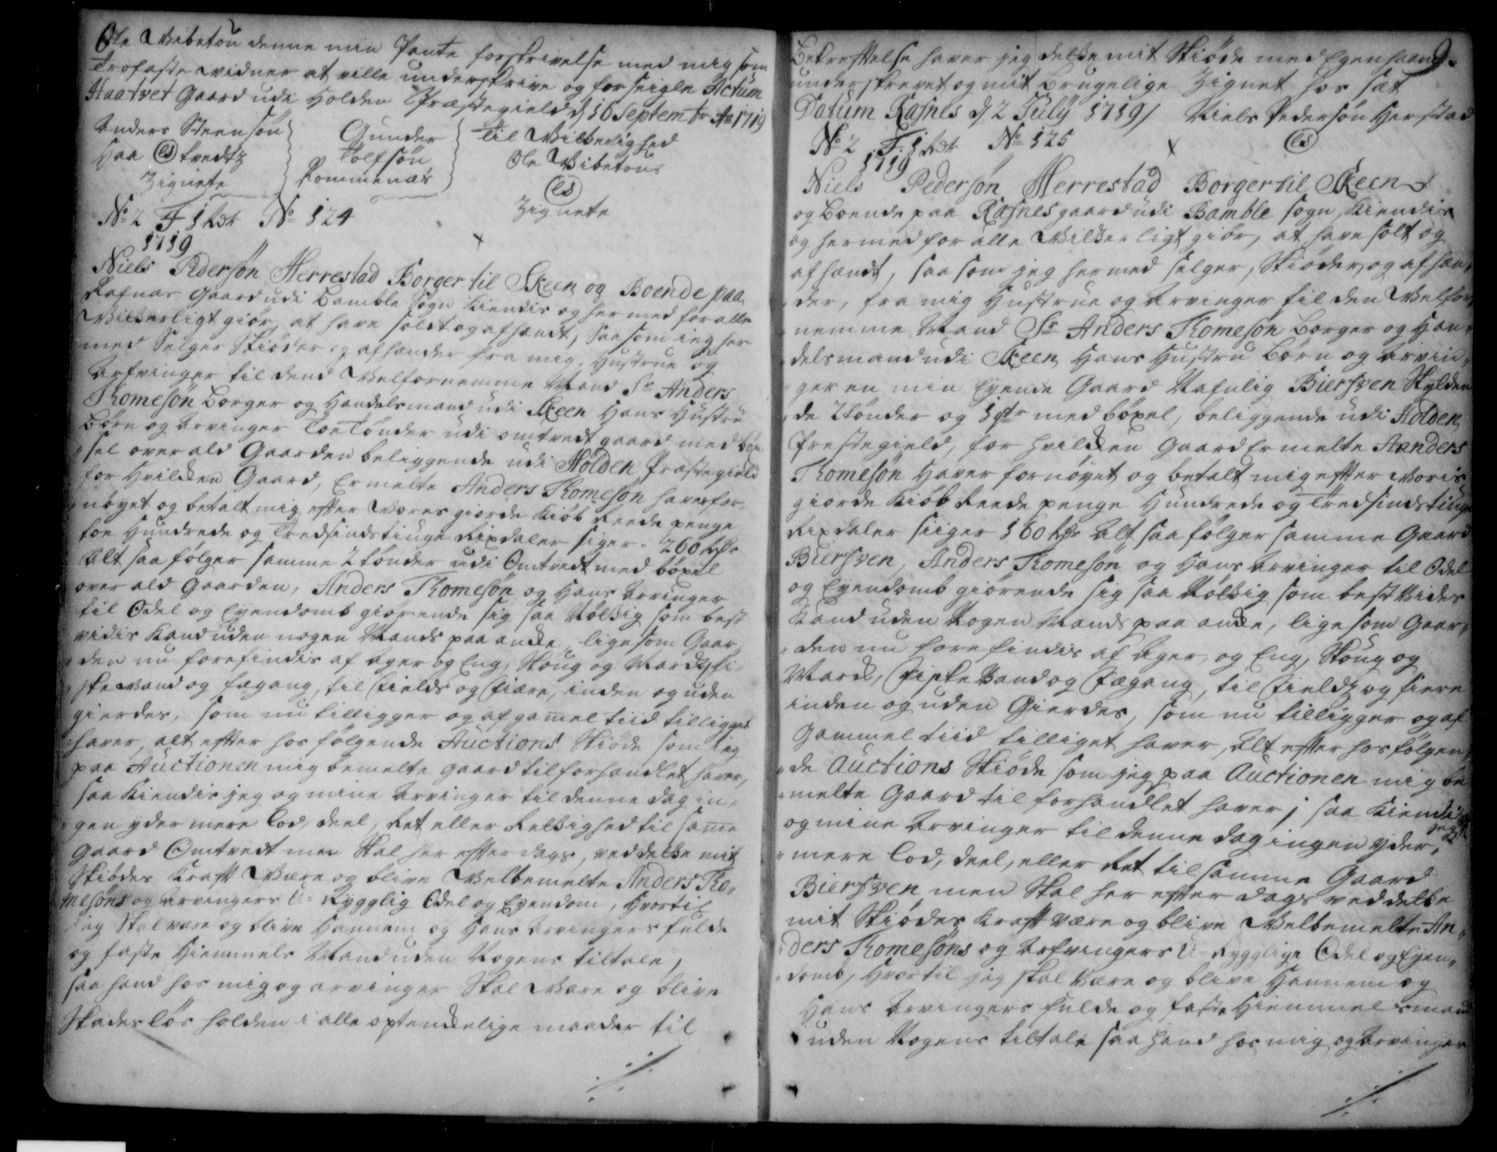 Ole Wibetou denne min Pante forskrivelse med mig som
Trofaste vidner at ville underskrive og forseigle Actum
Haatvet Gaard udi Holden Præstegield d 16 Septembr Ao 1719
Anders Steensøn Gunder til Witterlighed
Haa (LS) tvedtz Tolfsøn Ole Wibetous
Zignete Pommenæs (LS)
Zignete
No 2 F 1 No 124
1719
Niels Pedersøn Herrestad Borger til Skeen og Boende paa
Rafnæs Gaard udi Bamble Sogn Kiendis og hermed for alle
Witterligt giør, at have soldt og afhændt, saa som ieg her
med Selger Skiøder og afhender fra mig, Hustrue og
Arfvinger til dend Welfornemme Mand Sr Anders
Tomesøn Borger og Handelsmand udi Skeen Hans Hustru
Børn og Arvinger Toe Tønder udi omtvedt gaard med bøx-
sel over ald Gaarden beliggende udi Holden Præstegield
for Hvilken Gaard, Ermelte Anders Tomesøn haver for-
nøyet og betalt mig efter Wores giorde Kiøb Reede penge
toe Hundrede og Tredsindstiuge Rixdaler siger 260 Rdr
Alt saa følger samme 2 tønder udi Omtvedt med bøxel
over ald Gaarden, Anders Tomesøn og Hans Arvinger
til Odel og Eyendomb giørende sig saa Nøttig som best
vidis kand uden nogen Mands paa anke, lige som Gaar-
den nu forefindis af Ager og Eng, Skoug og Mark, fi-
ske vand og fægang, til fields og fiære, inden og uden
gierdes, som nu tilligger og af gammel tiid tilligget
haver, alt efter hos følgende Auctions Skiøde som jeg
paa Auctionen mig bemelte gaard tilforhandlet haver,
saa Kiendis jeg og mine Arvinger til denne dag in-
gen yder mere Lod, deel, Ret eller Rettighed til samme
Gaard Omtvedt men Skal her efter dags, ved dette mit
Skiødes Kraft Være og blive Welbemelte Anders To-
mesøns og Arvingers U-Ryggelig Odel og Eyendom, Hvortil
jeg Skal være og blive Hannem og Hans Arvingers fulde
og faste Hiemmels Mand uden Nogens tiltale,
saa hand hos mig og arvinger Skal Være og blive
Skadesløs holden i alle optenkelige maader til
9.
Bekreftelse haver jeg dette mit Skiøde med Egen haand
underskrevet og mit brugelige Zignet hos sat
Datum Rafnes d 2 Julij 1719 / Niels Pedersøn Herstad
(LS)
No 2 F 1 No 125
1719
Niels Pedersøn Herrestad Borger til Skeen
og Boende paa Rafnes gaard udi Bamble sogn, Kiendis
og hermed for alle Witterligt giør, at have solt og
afhændt, saa som jeg hermed selger, Skiøder og afhæn-
der, fra mig Hustrue og Arvinger til den Welfor-
nemme Mand Sr Anders Tomesøn Borger og Han-
delsmand udi Skeen, Hans Hustru Børn og Arvin-
ger en min Eyende Gaard Nafnlig Biersven Skylden-
de 2 tønder og 1 med bøxel, beliggende udi Holden
Præstegield, for Hvilken Gaard Ermelte Anders
Tomesøn Haver fornøyet og betalt mig efter Woris
giorde Kiøb Reede penge Hundrede og Tredsindstiuge
Rixdaler siiger 160 Rdr Alt saa følger samme Gaard
Biersven, Anders Tomesøn og Hans Arvinger til Odel
og Eyendomb giørende sig saa Nøttig som best Vides
Kand uden Nogen Mands paa anke, lige som Gaar-
den nu forefindis af Ager, og Eng, Skoug og
Mark, fiske Vand og fægang, til fieldz og fiere
inden og uden Gierdes, som nu tilligger og af
gammel tiid tilliget haver, Alt efter hos følgen-
de Auctions Skiøde som jeg paa Auctionen mig be-
melte Gaard tilforhandlet haver, saa Kiendis jeg
og mine Arvinger til denne dag ingen yder-
mere Lod, deel, eller Ret til samme Gaard
Biersven men Skal her efter dags ved dette
mit Skiødes Kraft være og blive Welbemelte An-
ders Tomesøns og Arfvingers U-Ryggelige Odel og Eyen-
domb, Hvortil jeg skal være og blive Hannem og
Hans Arvingers fulde og faste Hiemmels mand
uden Nogens tiltale saa hand hos mig og Arvinger